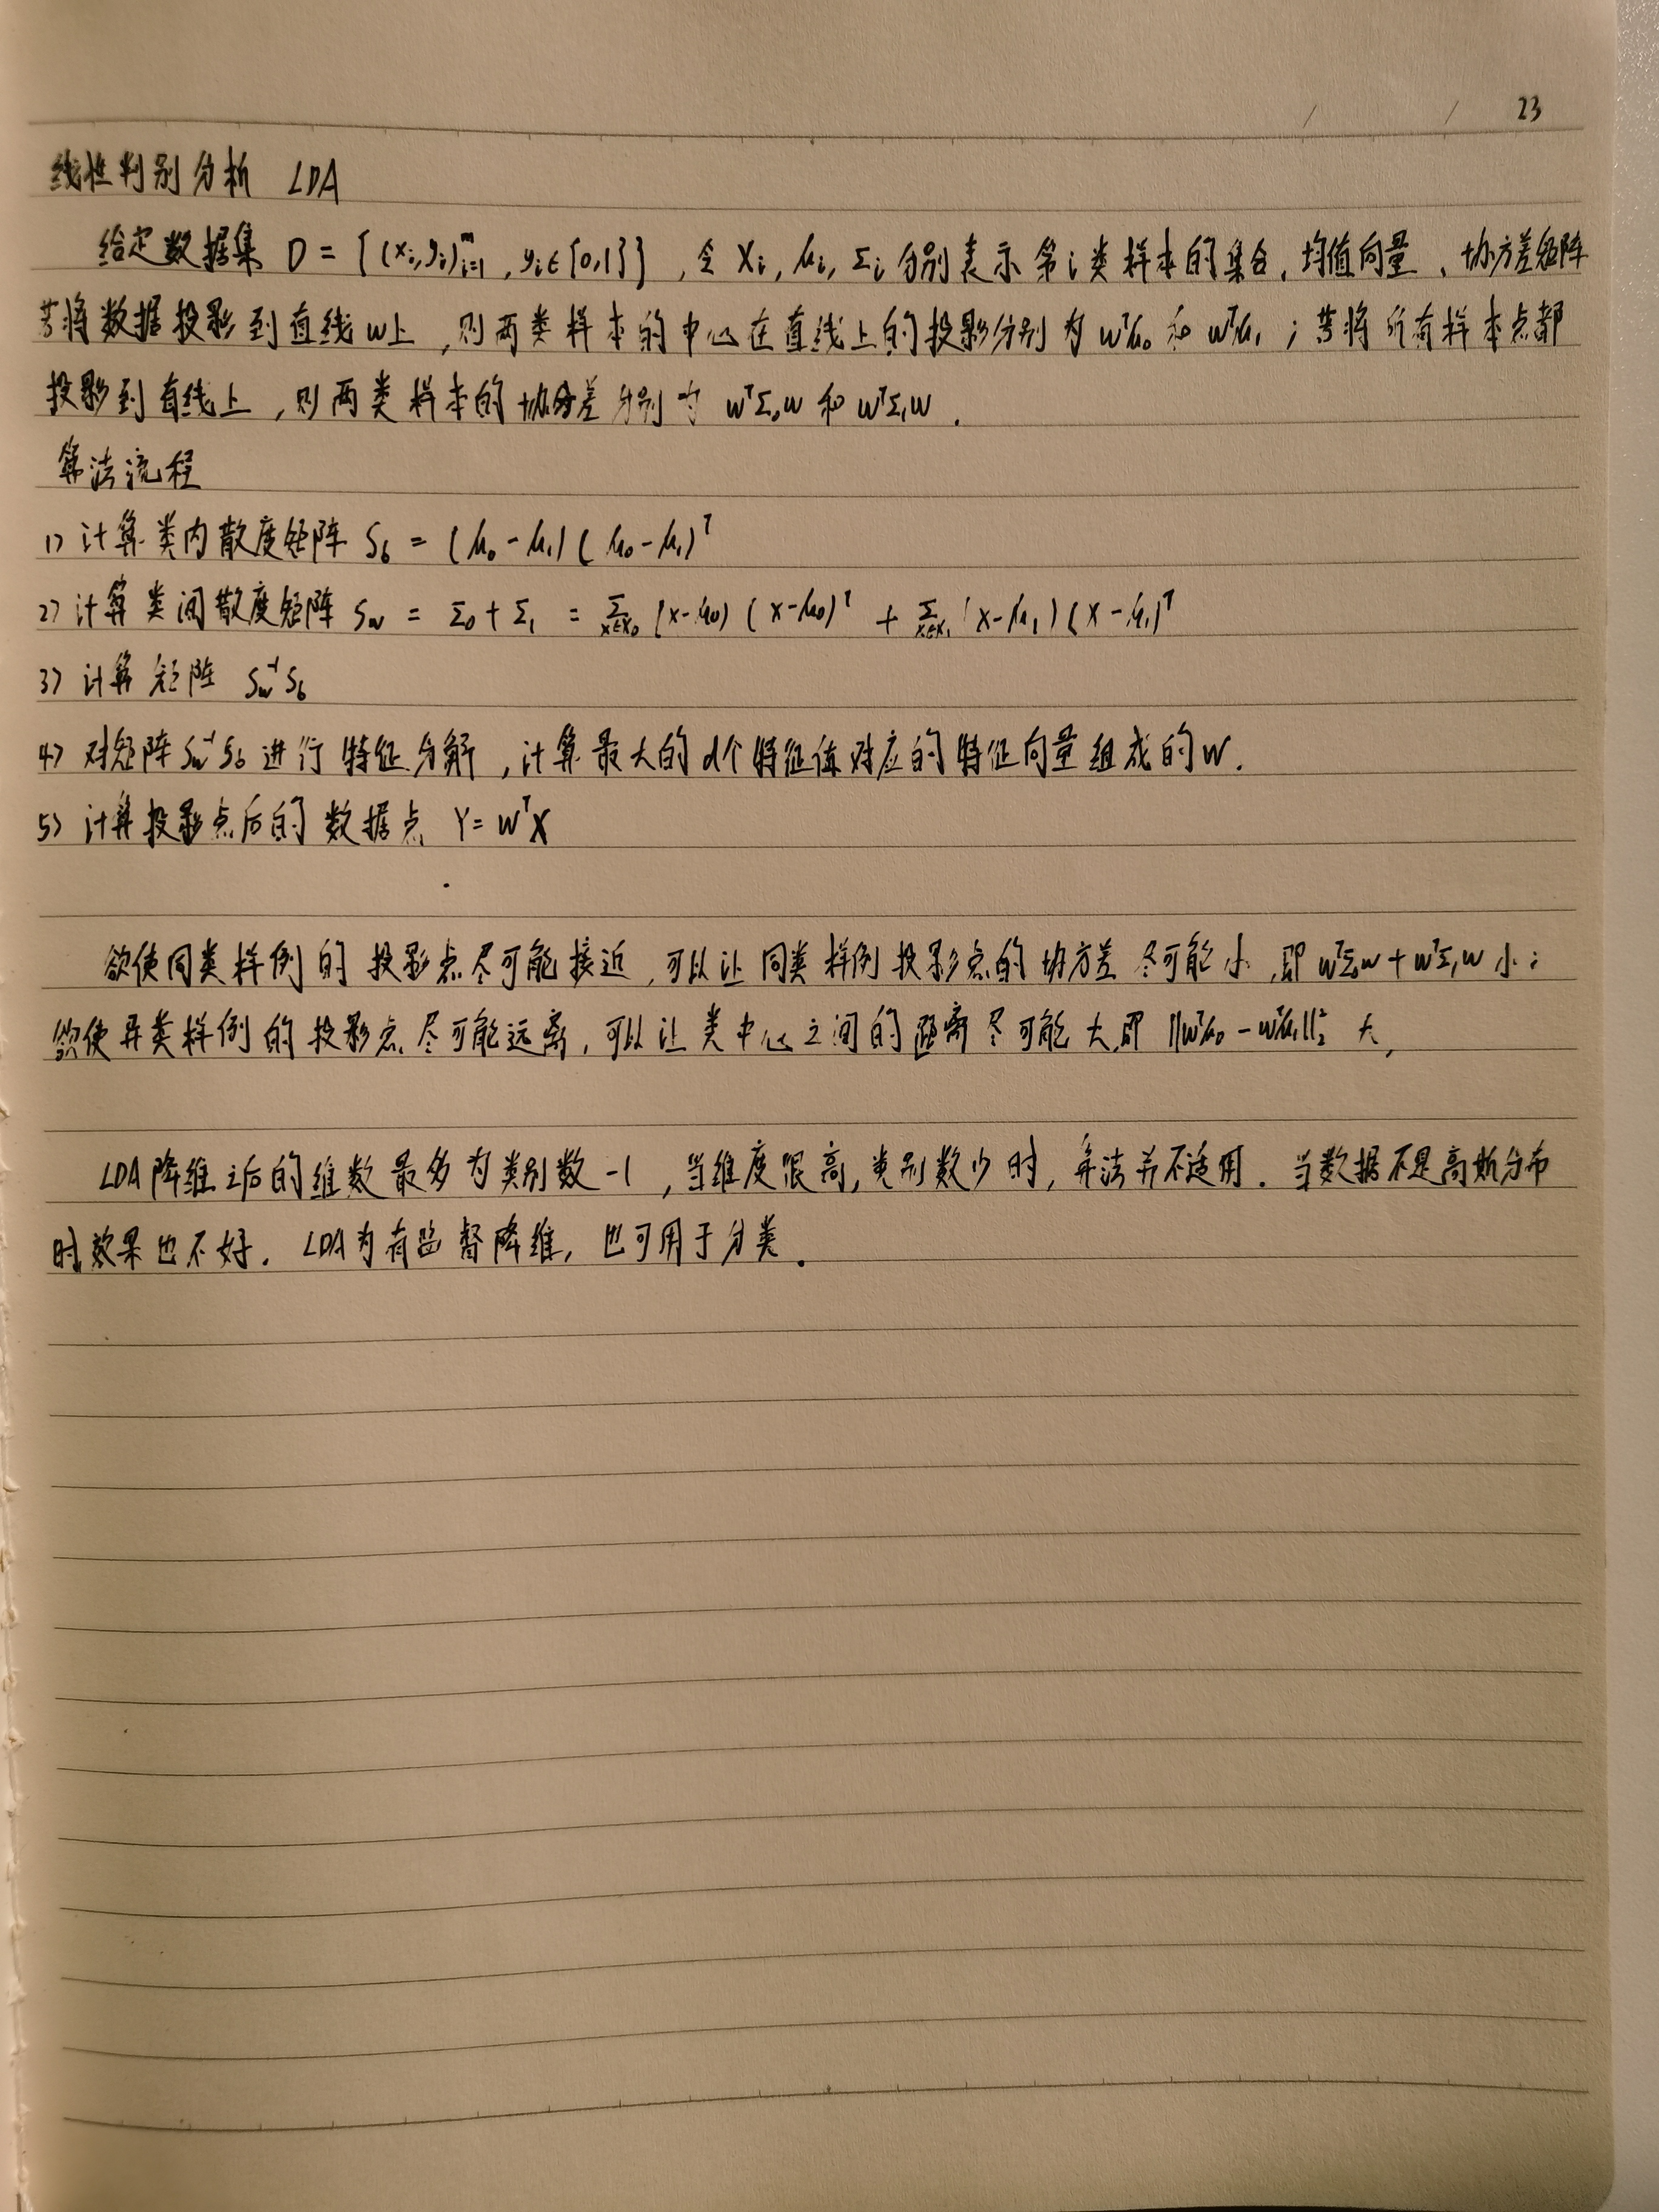 23
线性判别分析 LDA
给定数据集 D = {(xᵢ,yᵢ)ᵐᵢ₌₁ , yᵢ∈{0,1}} , 令 Xᵢ, μᵢ, Σᵢ 分别表示第 i 类样本的集合、均值向量、协方差矩阵
若将数据投影到直线w上 ,则两类样本的中心在直线上的投影分别为 wᵀμ₀ 和 wᵀμ₁ ; 若将所有样本点都
投影到直线上 ,则两类样本的协方差分别为 wᵀΣ₀w 和 wᵀΣ₁w .
算法流程
1) 计算类内散度矩阵 S_b = (μ₀ - μ₁) ( μ₀ - μ₁)ᵀ
2) 计算类间散度矩阵 S_w = Σ₀ + Σ₁ = Σ_{x∈X₀} (x-μ₀) (x-μ₀)ᵀ + Σ_{x∈X₁} (x-μ₁) (x-μ₁)ᵀ
3) 计算矩阵 S_w⁻¹S_b
4) 对矩阵S_w⁻¹S_b 进行特征分解 ,计算最大的 d个特征值对应的特征向量组成的W.
5) 计算投影点后的数据点 Y= WᵀX
欲使同类样例的投影点尽可能接近,可以让同类样例投影点的协方差尽可能小,即 wᵀΣ₀w + wᵀΣ₁w 小;
欲使异类样例的投影点尽可能远离,可以让类中心之间的距离尽可能大,即 ||wᵀμ₀ - wᵀμ₁||₂² 大,
LDA 降维之后的维数最多为类别数 -1 ,当维度很高,类别数少时,算法并不适用. 当数据不是高斯分布
时,效果也不好. LDA为有监督降维,也可用于分类.